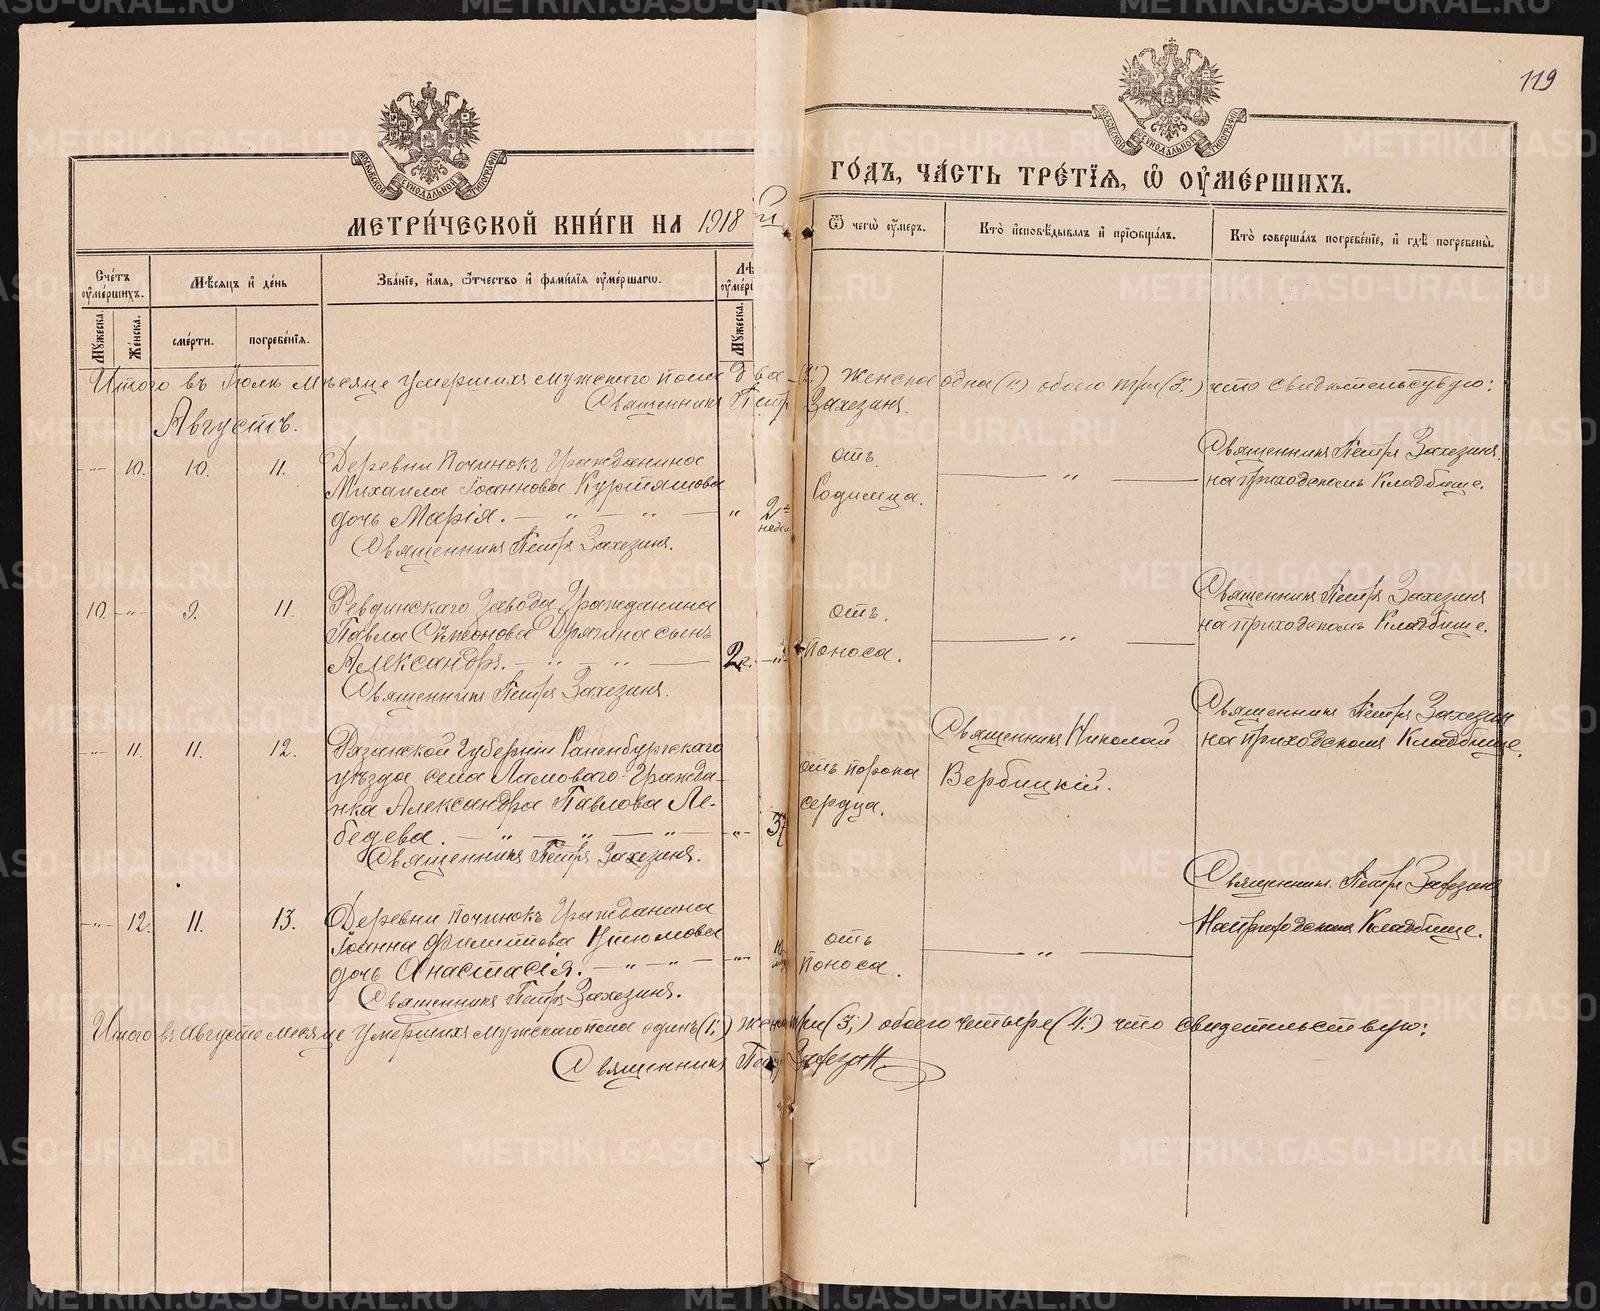 119
МЕТРИ́ЧЕСКОЙ КНИ́ГИ НА 1918й
ГО́ДЪ, ЧА́СТЬ ТРЕ́ТЇѦ, Ѽ ОУ҆МЕ́РШИХЪ.
Сче́тъ оу҆ме́ршихъ.
Мѣ́сѧцъ и҆ де́нь
Зва́нїе, и҆́мѧ, ѻ҆́тчество и҆ фами́лїѧ оу҆ме́ршагѡ.
Ѿ чегѡ̀ оу҆́меръ.
Кто̀ и҆сповѣ́дывалъ и҆ прїѡбща́лъ.
Кто̀ соверша́лъ погребе́нїе, и҆ гдѣ̀ погребены̀.
Мꙋ́жеска.
Же́нска.
сме́рти.
погребе́нїѧ.
Мꙋ́жеска.
Итого въ Іюлѣ мѣсяцѣ умершихъ мужскаго пола два (2:) женска одна (1:) обоего три (3:) что свидѣтельствую:
Священникъ Петръ Захезинъ.
Августъ.
-"- 10. 10. 11. Деревни Починокъ Гражданина
Михаила Іоаннова Курташова
дочь Марія. — " — " — " 2хъ недѣл.
Священникъ Петръ Захезинъ.
отъ
Родимца.
— " —
Священникъ Петръ Захезинъ.
на приходскомъ Кладбище.
10. -"- 9. 11. Ревдинскаго Завода Гражданина
Павла Сѵмонова Дрягина сынъ
Александръ. — " — " — 2г. -"-
Священникъ Петръ Захезинъ.
отъ
Поноса.
— " —
Священникъ Петръ Захезинъ
на приходскомъ Кладбище.
-"- 11. 11. 12. Рязанской Губерніи Раненбургскаго
уѣзда села Ламоваго Гражда-
нка Александра Павлова Ле-
бедева. — " — " — " — -"- 37
Священникъ Петръ Захезинъ.
отъ порока
сердца.
Священникъ Николай
Вербицкій.
Священникъ Петръ Захезинъ
на приходскомъ Кладбище.
-"- 12. 11. 13. Деревни Починокъ Гражданина
Іоанна Филиппова Утюмова
дочь Анастасія. — " — " — -"-
Священникъ Петръ Захезинъ.
отъ
Поноса.
— " —
Священникъ Петръ Захезинъ
На приходскомъ Кладбище.
Итого въ Августѣ мѣсяцѣ умершихъ мужскаго пола одинъ (1:) женск три (3:) обоего четыре (4:) что свидетельствую:
Священникъ Петръ Захезинъ